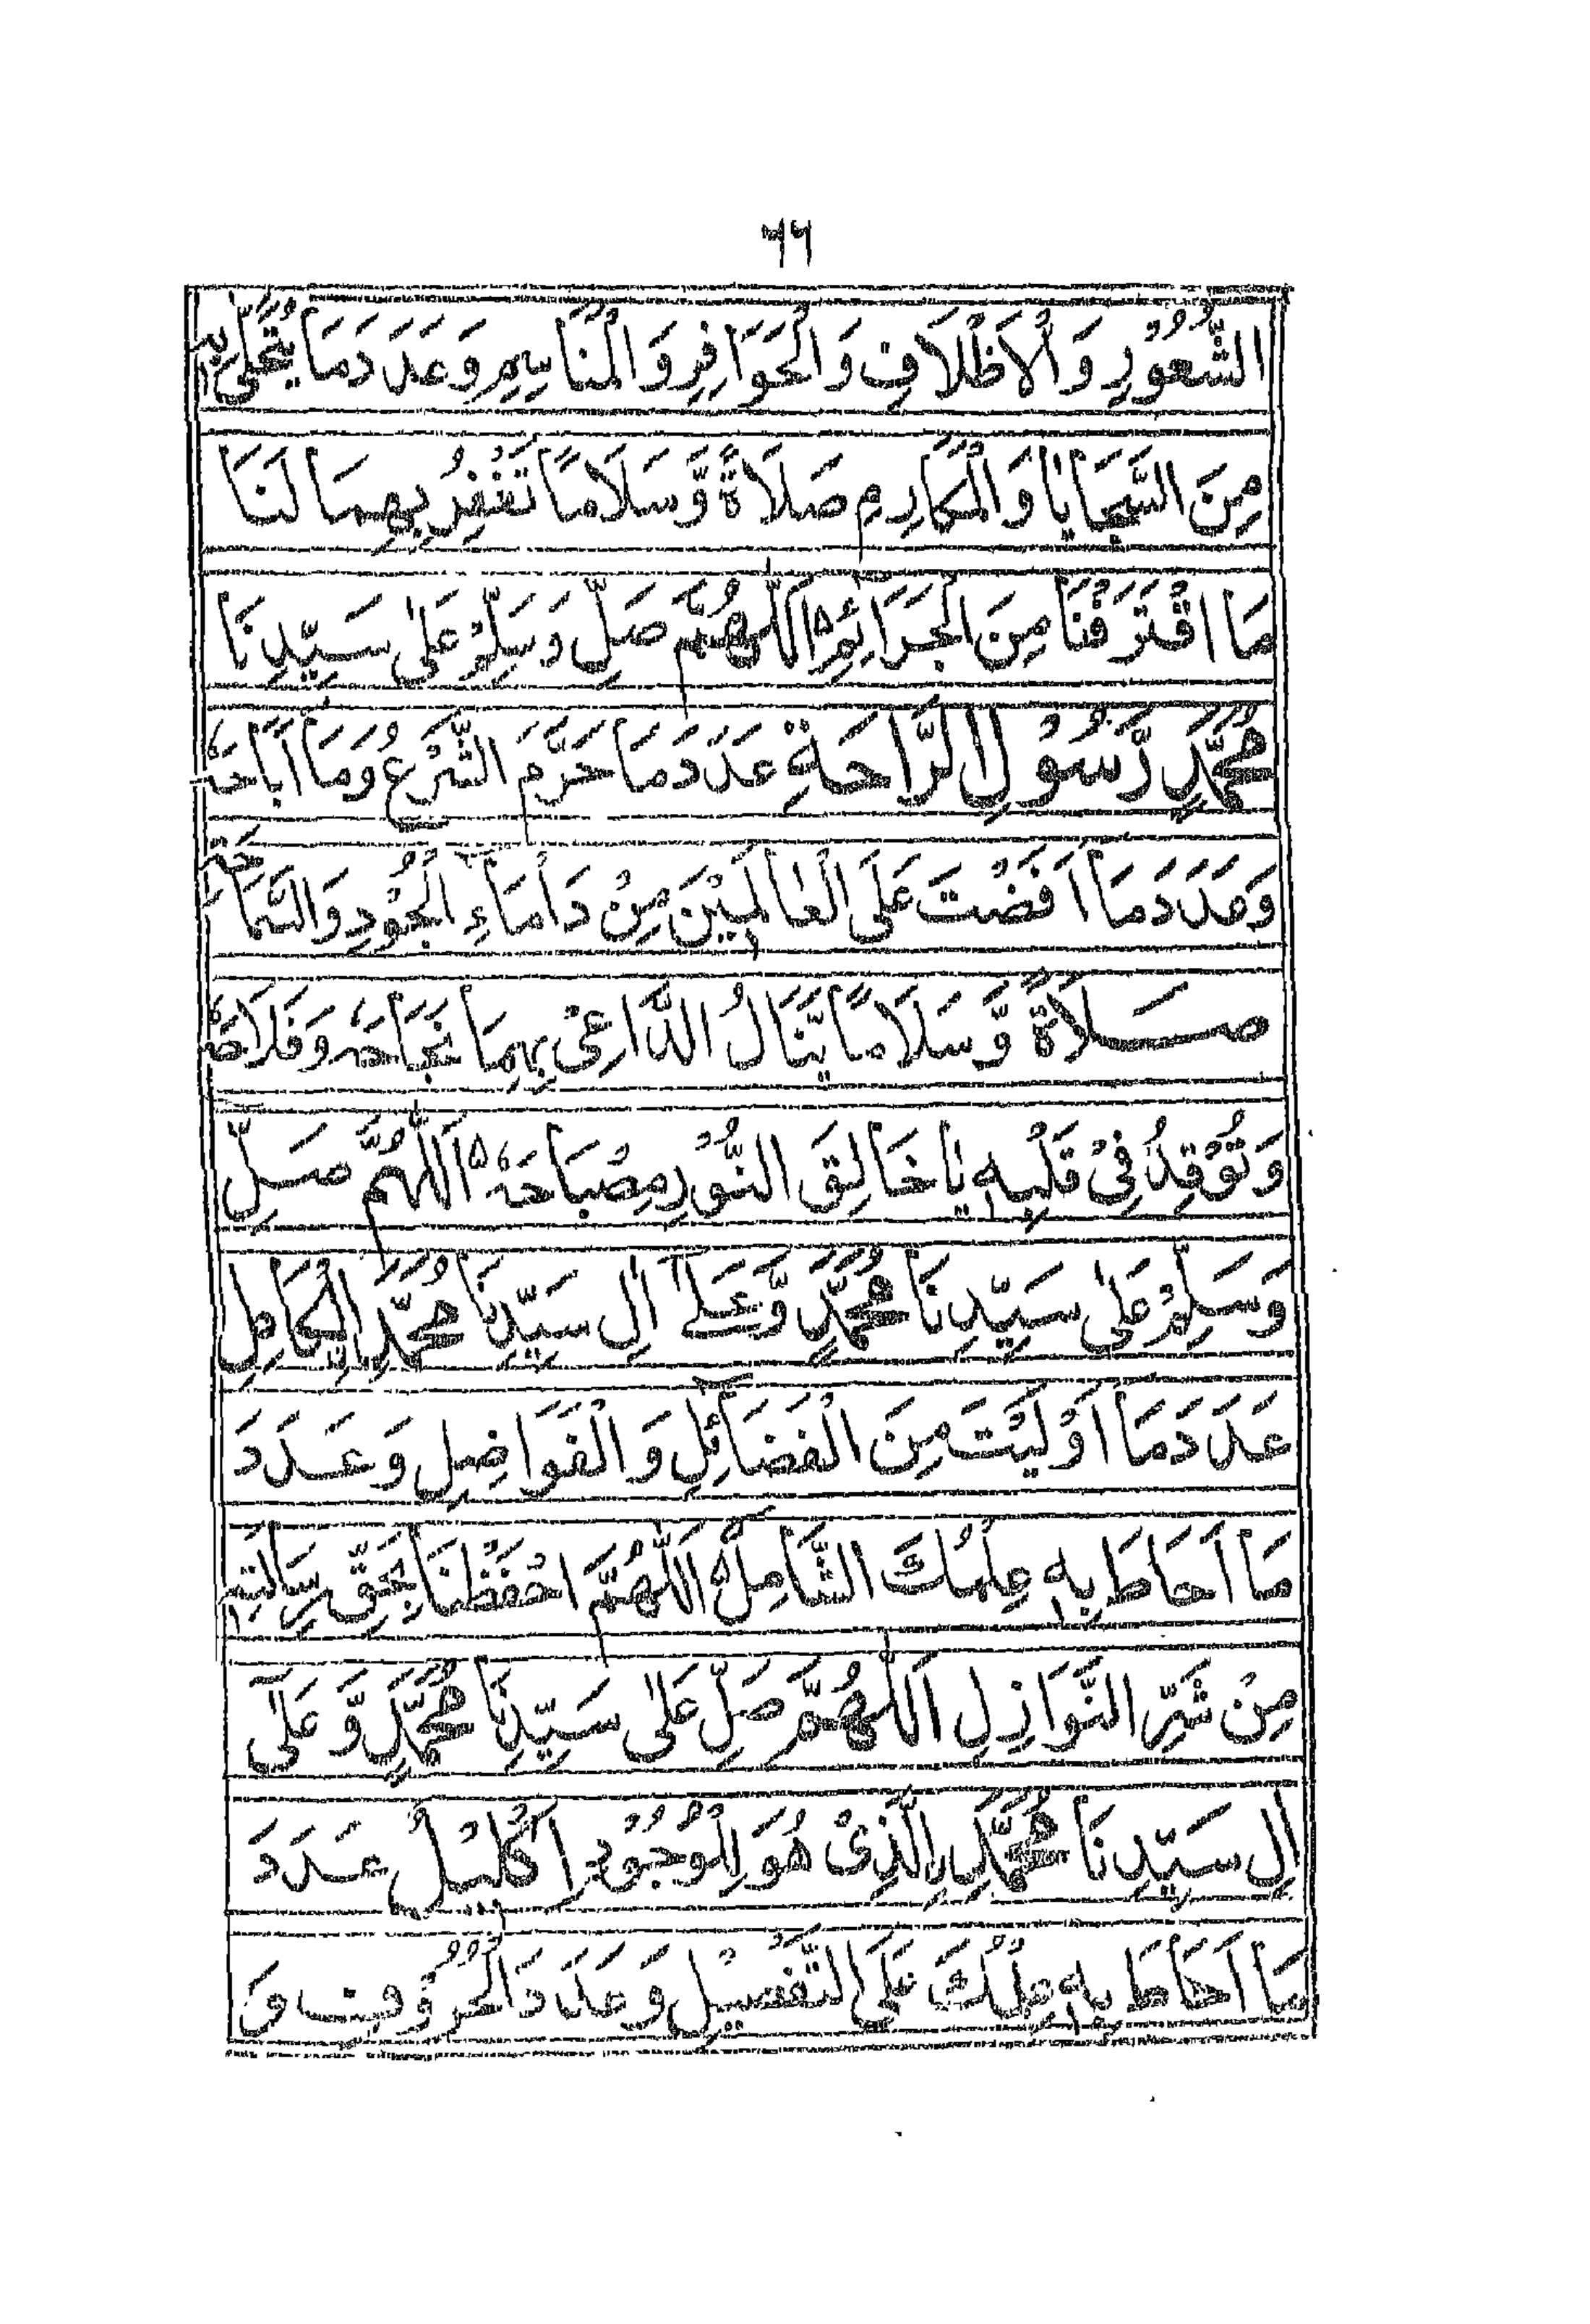 ٦٦
الشُّعُوْرِ وَالْاَظْلَافِ وَالْحَوَافِرِ وَالْمَنَاسِمِ وَعَدَدَ مَا يُتَحَلّٰى بِهٖ
مِنَ السَّجَايَا وَالْمَكَارِمِ صَلَاةً وَّسَلَامًا تَغْفِرُ بِهِمَا لَنَا
مَا اقْتَرَفْنَا مِنَ الْجَرَائِمِ ۵ اَللّٰهُمَّ صَلِّ وَسَلِّمْ عَلٰى سَيِّدِنَا
مُحَمَّدٍ رَّسُوْلِ الرَّاحَةِ عَدَدَ مَا حَرَّمَ الشَّرْعُ وَمَا اَبَاحَهٗ
وَعَدَدَ مَا اَفَضْتَ عَلَى الْعَالَمِيْنَ مِنْ دَأْمَاءِ الْجُوْدِ وَالسَّمَاحَةِ
صَلَاةً وَّسَلَامًا يَّنَالُ الدَّاعِيْ بِهِمَا نَجَاحَهٗ وَفَلَاحَهٗ
وَتُوْقِدُ فِيْ قَلْبِهٖ يَا خَالِقَ النُّوْرِ مِصْبَاحَهٗ ۵ اَللّٰهُمَّ صَلِّ
وَسَلِّمْ عَلٰى سَيِّدِنَا مُحَمَّدٍ وَّعَلٰٓى اٰلِ سَيِّدِنَا مُحَمَّدِ الْكَامِلِ
عَدَدَ مَا اَوْلَيْتَ مِنَ الْفَضَائِلِ وَالْفَوَاضِلِ وَعَدَدَ
مَا اَحَاطَ بِهٖ عِلْمُكَ الشَّامِلُ ۵ اَللّٰهُمَّ احْفَظْنَا بِحَقِّ رِسَالَتِهٖ
مِنْ شَرِّ النَّوَازِلِ اَللّٰهُمَّ صَلِّ عَلٰى سَيِّدِنَا مُحَمَّدٍ وَّعَلٰٓى
اٰلِ سَيِّدِنَا مُحَمَّدِ الَّذِيْ هُوَ لِلْوُجُوْدِ اِكْلِيْلٌ عَدَدَ
مَا اَحَاطَ بِهٖ عِلْمُكَ عَلَى التَّفْصِيْلِ وَعَدَدَ الْحُرُوْفِ وَ